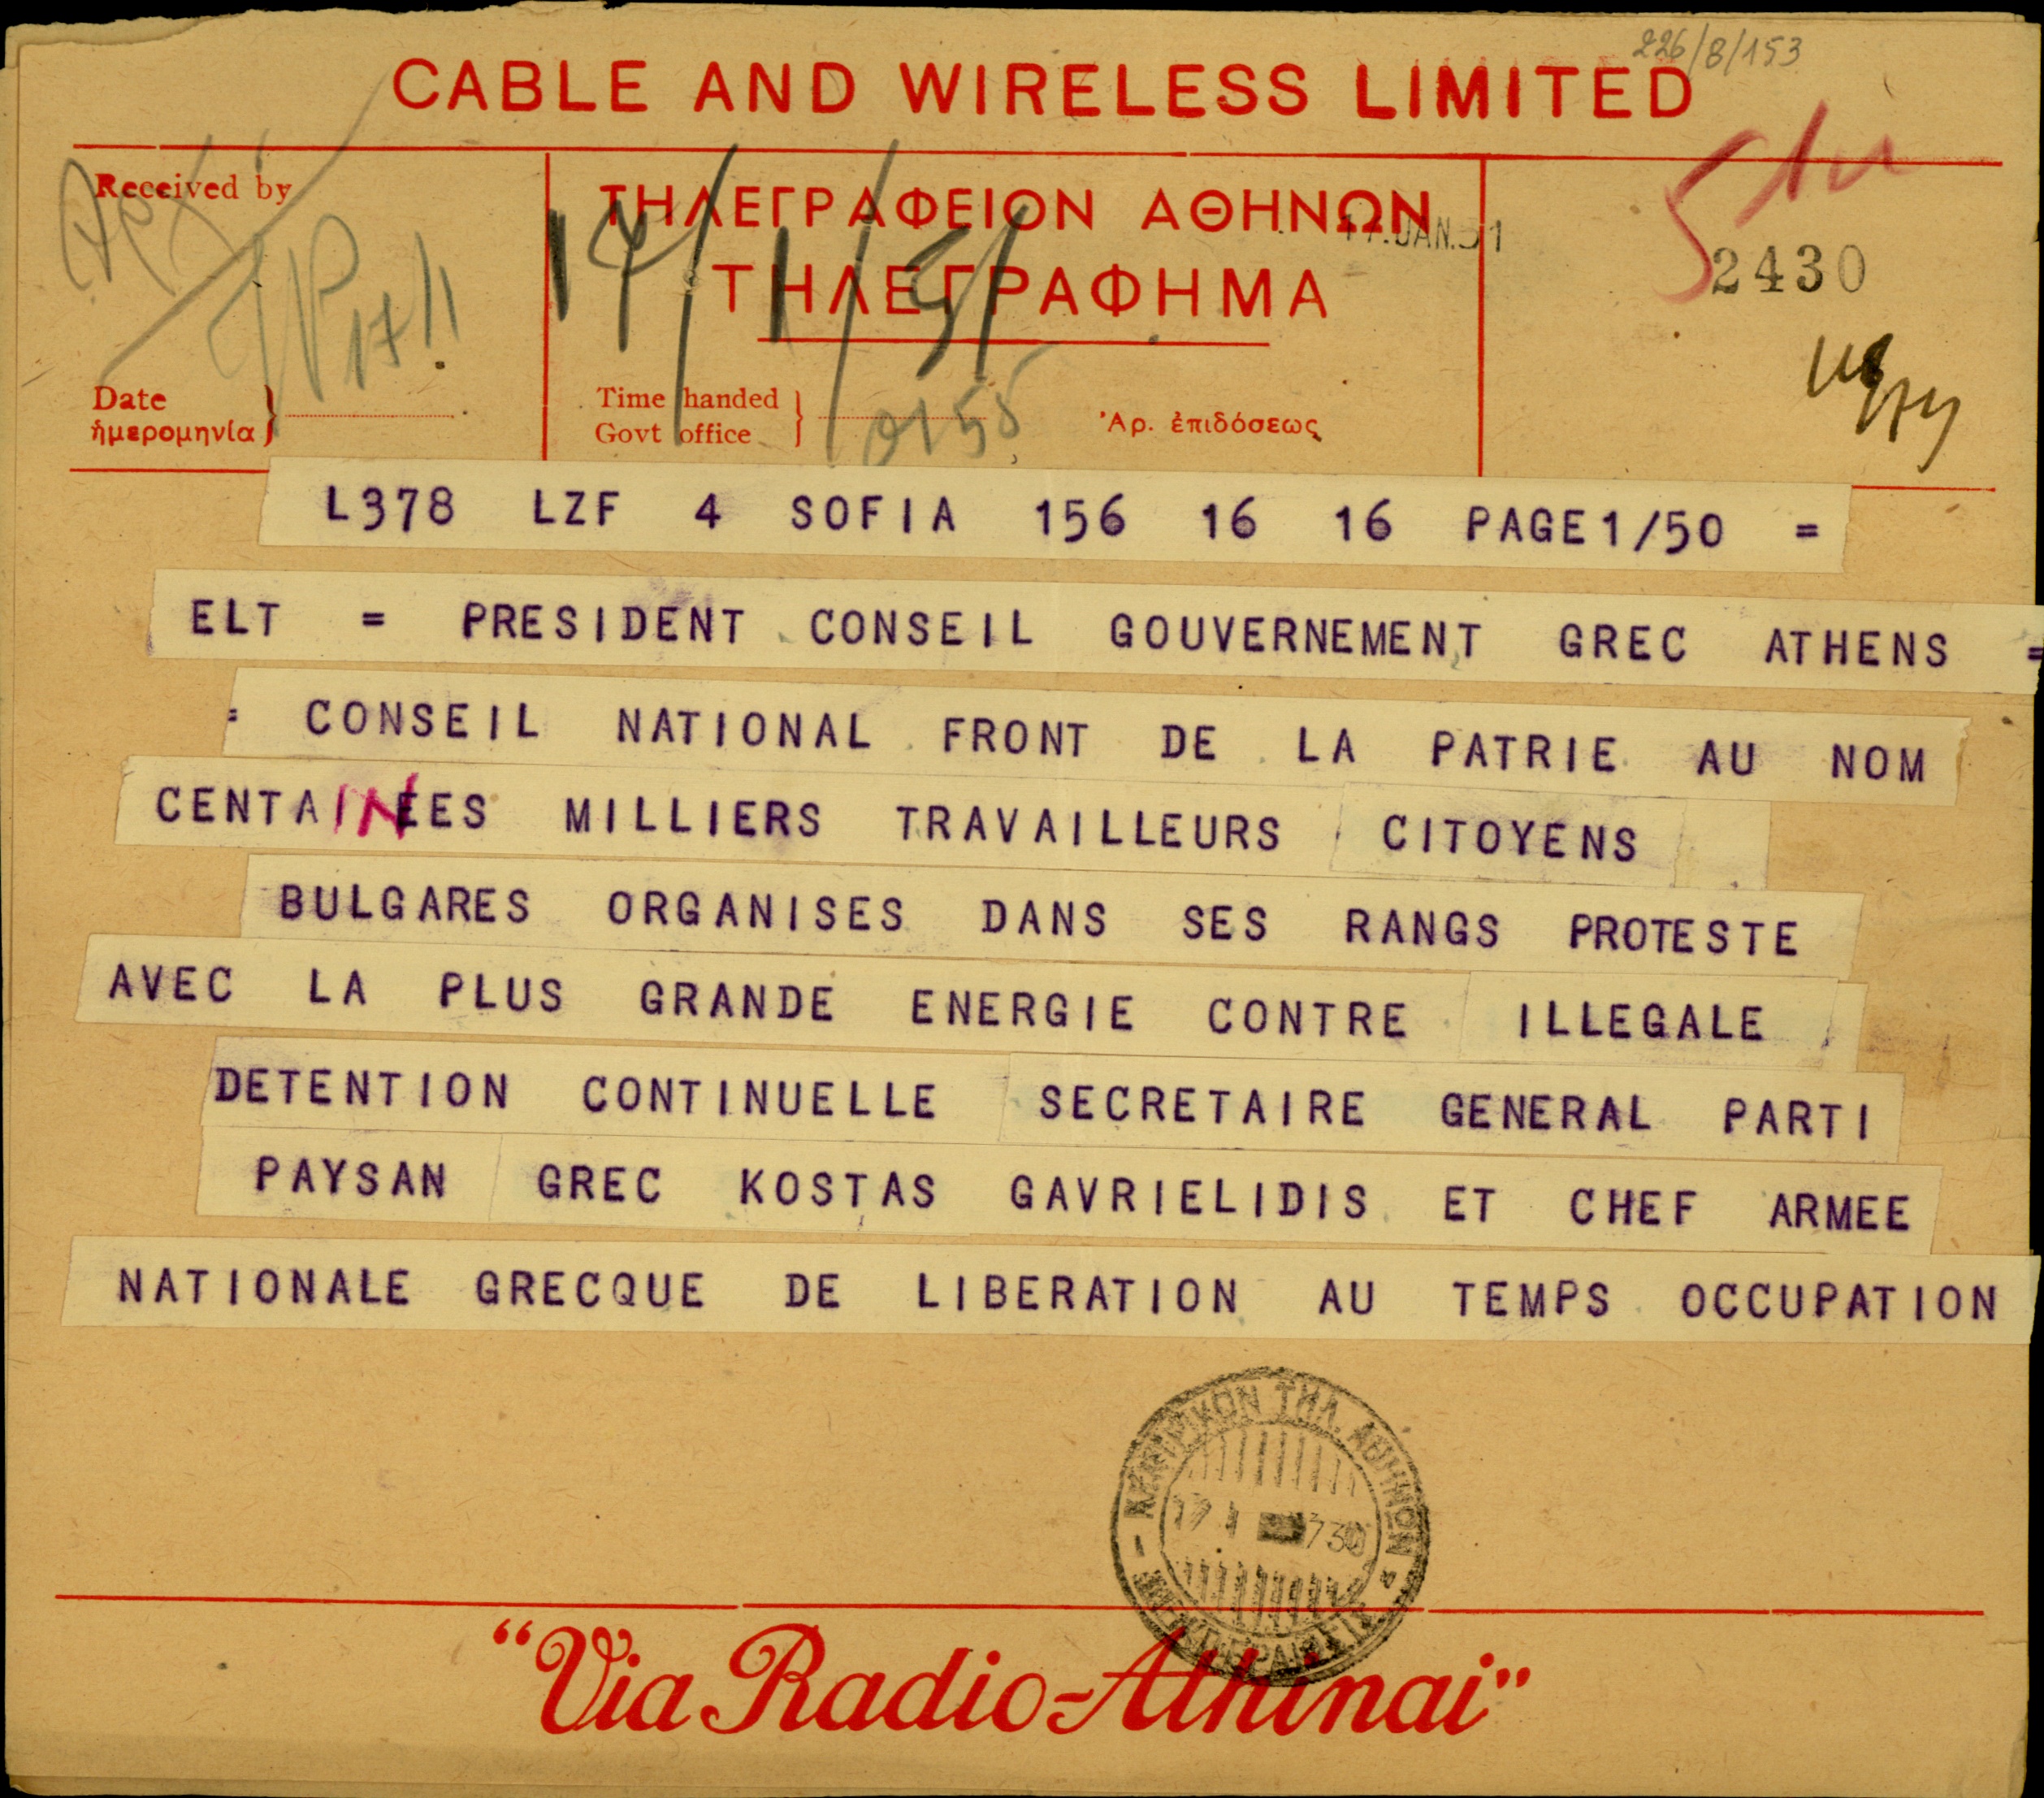 226/8/153
CABLE AND WIRELESS LIMITED
Received by
ΤΗΛΕΓΡΑΦΕΙΟΝ ΑΘΗΝΩΝ
17.JAN.51
ΤΗΛΕΓΡΑΦΗΜΑ
2430
17/1
17/1/51
Date
ἡμερομηνία
Time handed
Govt office
0155
Ἀρ. ἐπιδόσεως
L378 LZF 4 SOFIA 156 16 16 PAGE1/50 =
ELT = PRESIDENT CONSEIL GOUVERNEMENT GREC ATHENS =
= CONSEIL NATIONAL FRONT DE LA PATRIE AU NOM
CENTAINEES MILLIERS TRAVAILLEURS CITOYENS
BULGARES ORGANISES DANS SES RANGS PROTESTE
AVEC LA PLUS GRANDE ENERGIE CONTRE ILLEGALE
DETENTION CONTINUELLE SECRETAIRE GENERAL PARTI
PAYSAN GREC KOSTAS GAVRIELIDIS ET CHEF ARMEE
NATIONALE GRECQUE DE LIBERATION AU TEMPS OCCUPATION
ΤΗΛ. ΑΘΗΝΩΝ
17 1 730
"Via Radio-Athinai"